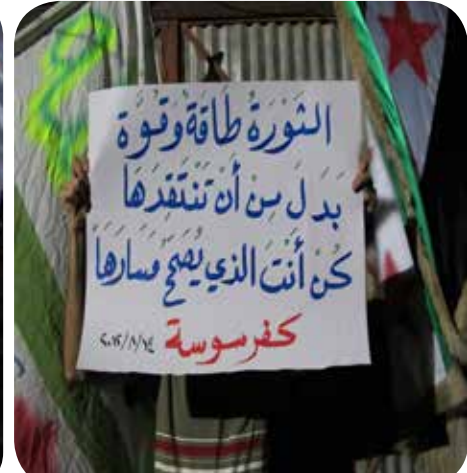 الثَوْرَةُ طَاقَةٌ وَقُوَّة
بَدَلَ مِنْ أَنْ تَنْتَقِدَهَا
كُنْ أَنْتَ الذي يُصَحِّحُ مَسَارهَا
كفرسوسة ٢٠١٢/٨/١٤